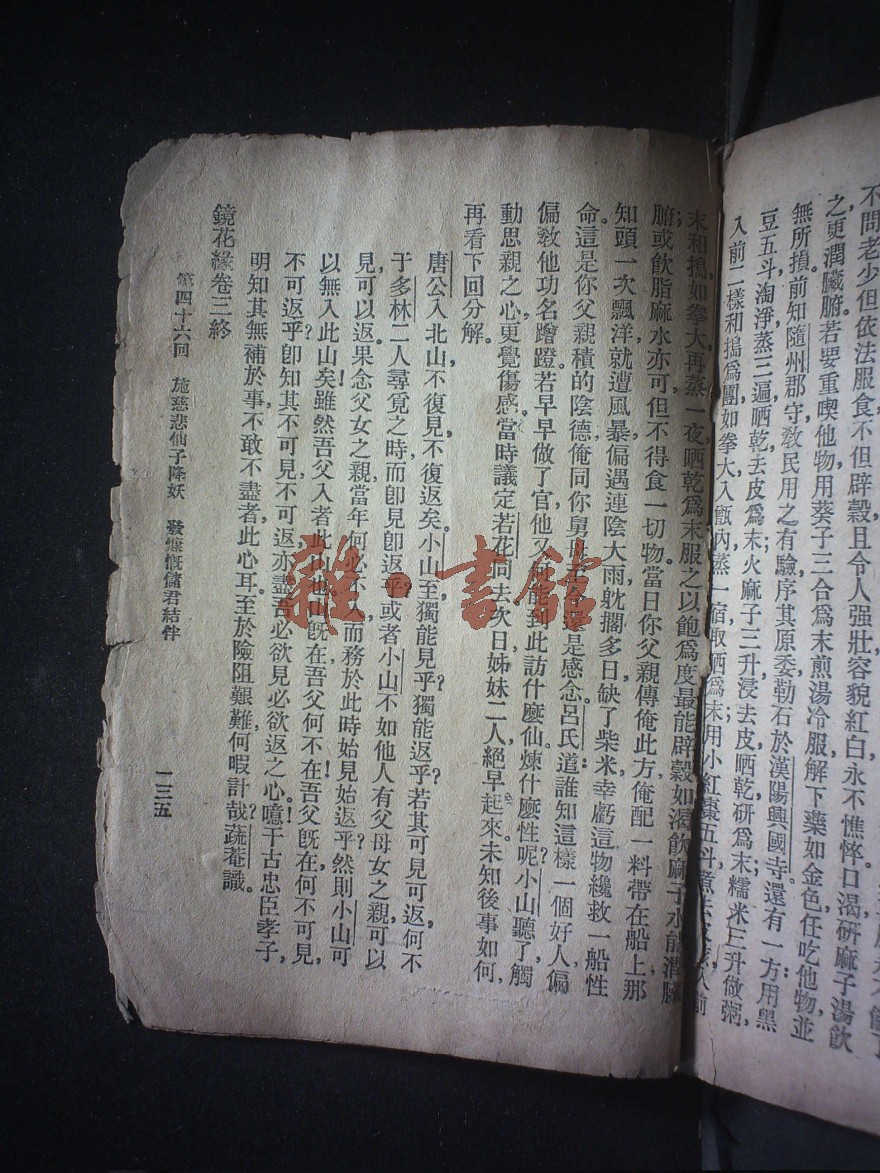 不問老少但依法服食不但辟穀且令人强壯容貌紅白永不憔悴口渴研麻子湯飲
之更潤臟腑若要重喫他物用葵子三合爲末煎湯冷服解下藥如金色任吃他物並
無所損前知隨州郡守敎民用之有驗序其原委勒石於漢陽興國寺。還有一方用黑
豆五斗淘淨蒸三遍晒乾去皮爲末火麻子三升浸去皮晒乾研爲末糯米三升做粥,
入前二樣和搗爲團如拳大入甑內蒸一宿取晒爲末用小紅棗五斗煮去
末和搗,如拳大再蒸一夜晒乾爲末服之以飽爲度最能辟穀如渴飲麻子水能潤臟
腑或飲脂麻水亦可但不得食一切物當日你父親傳俺此方俺配一料帶在船上那
知頭一次飄洋就遭風暴偏遇連陰大雨躭擱多日缺了柴米幸虧這物纔救一船性
命。這是你父親積的陰德俺同你舅母至今還是感念。呂氏道:誰知這樣一個好人偏
偏敎他功名蹭蹬若早早做了官他又何能到此訪什麼仙煉什麼性呢?小山聽了觸
動思親之心更覺傷感當時議定若花同去次日姊妹二人絕早起來。未知後事如何,
再看下回分解。
唐公入北山不復見不復返矣。小山至獨能見乎?獨能返乎?若其可見可返,何不
于多林二人尋覓之時而卽見卽返乎?或者小山不如他人有父母女之親可以
見可以返果念父女之親當年何必入山而務於此時始見始返乎?然則小山可
以無入此山矣!雖然吾父入者此山也山旣在吾父何不在!吾父旣在何不可見,
不可返乎?卽知其不可見不可返亦盡吾必欲見必欲返之心。噫!千古忠臣孝子,
明知其無補於事不敢不盡者此心耳至於險阻艱難何暇計哉?蔬菴識。
鏡花緣卷三終
第四十六回 施慈悲仙子降妖 發慷慨儲君結伴
一三五
雜·書館